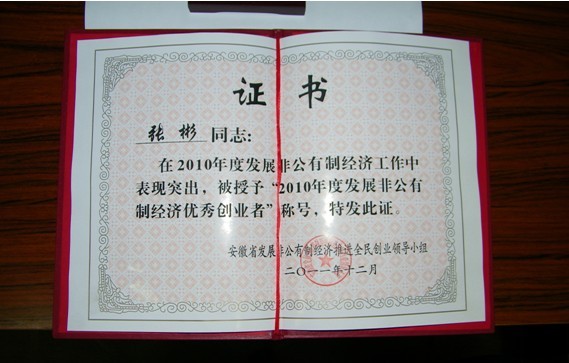 证书
张彬 同志:
在2010年度发展非公有制经济工作中
表现突出，被授予“2010年度发展非公有
制经济优秀创业者”称号，特发此证。
安徽省发展非公有制经济推进全民创业领导小组
二〇一一年十二月